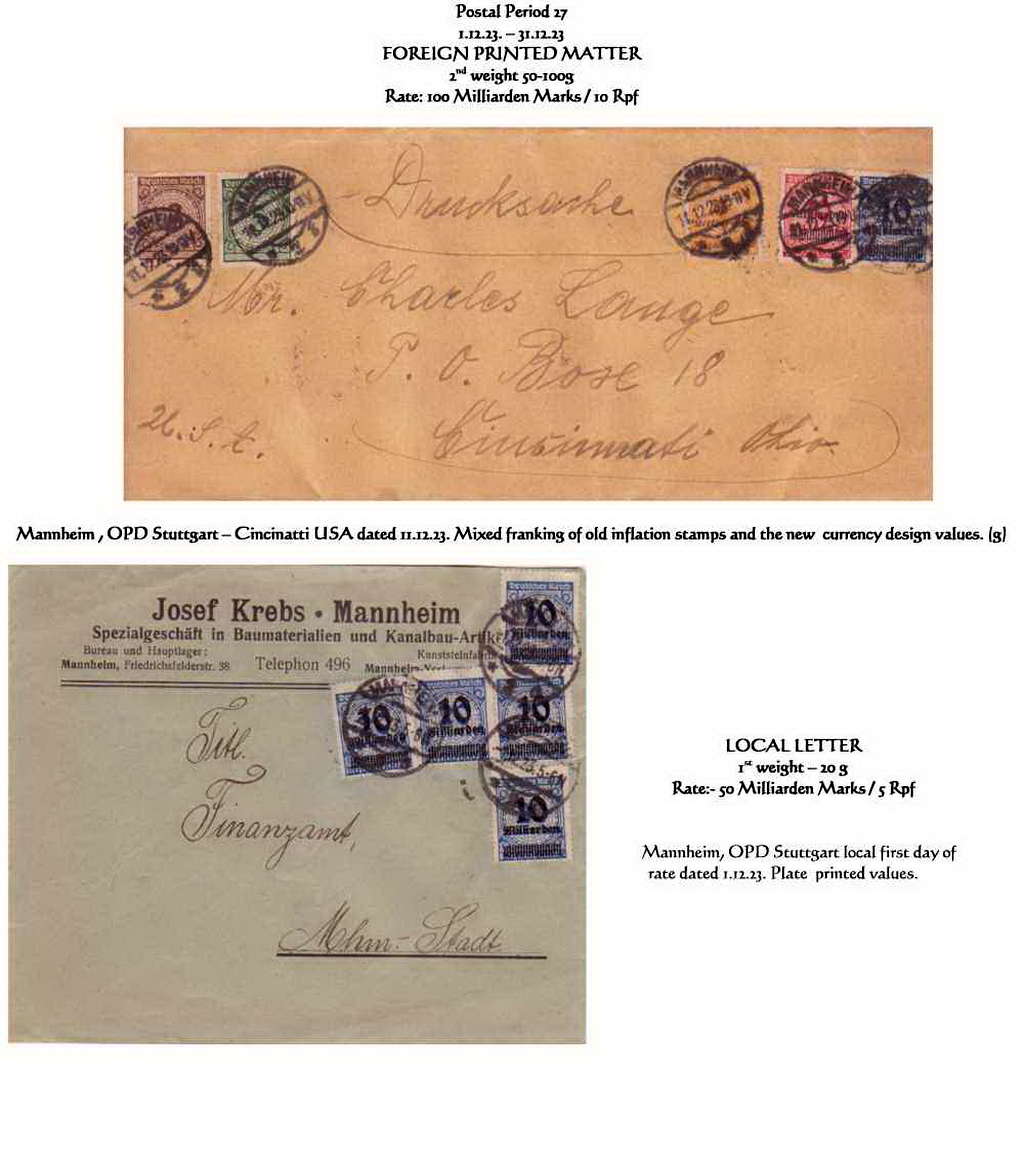 Postal Period 27
1.12.23. – 31.12.23
FOREIGN PRINTED MATTER
2nd weight 50-100g
Rate: 100 Milliarden Marks / 10 Rpf
Deutsches Reich
MANNHEIM
11.12.23
Drucksache
Mr. Charles Lange
P. O. Boxe 18
Cincinnati Ohio.
U.S.A.
Mannheim , OPD Stuttgart – Cincinatti USA dated 11.12.23. Mixed franking of old inflation stamps and the new currency design values. (g)
Josef Krebs • Mannheim
Spezialgeschäft in Baumaterialien und Kanalbau-Artikel
Bureau und Hauptlager:
Mannheim, Friedrichsfelderstr. 38 Telephon 496
Deutsches Reich
10
Milliarden
10
Milliarden
10
Milliarden
10
Milliarden
10
Milliarden
Titl.
Finanzamt,
Mhm.- Stadt.
LOCAL LETTER
1st weight – 20 g
Rate:- 50 Milliarden Marks / 5 Rpf
Mannheim, OPD Stuttgart local first day of
rate dated 1.12.23. Plate printed values.